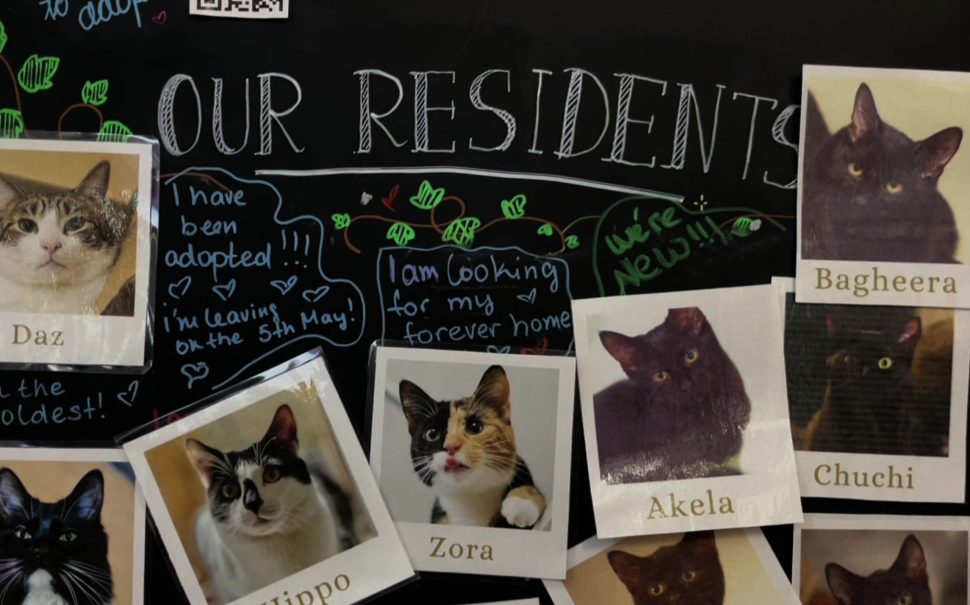 to adopt
OUR RESIDENTS
I have
been
adopted !!!
i'm leaving
on the 5th May!
I am looking
for my
forever home
we're
NEW!!!
Bagheera
Daz
the
oldest!
Hippo
Zora
Akela
Chuchi